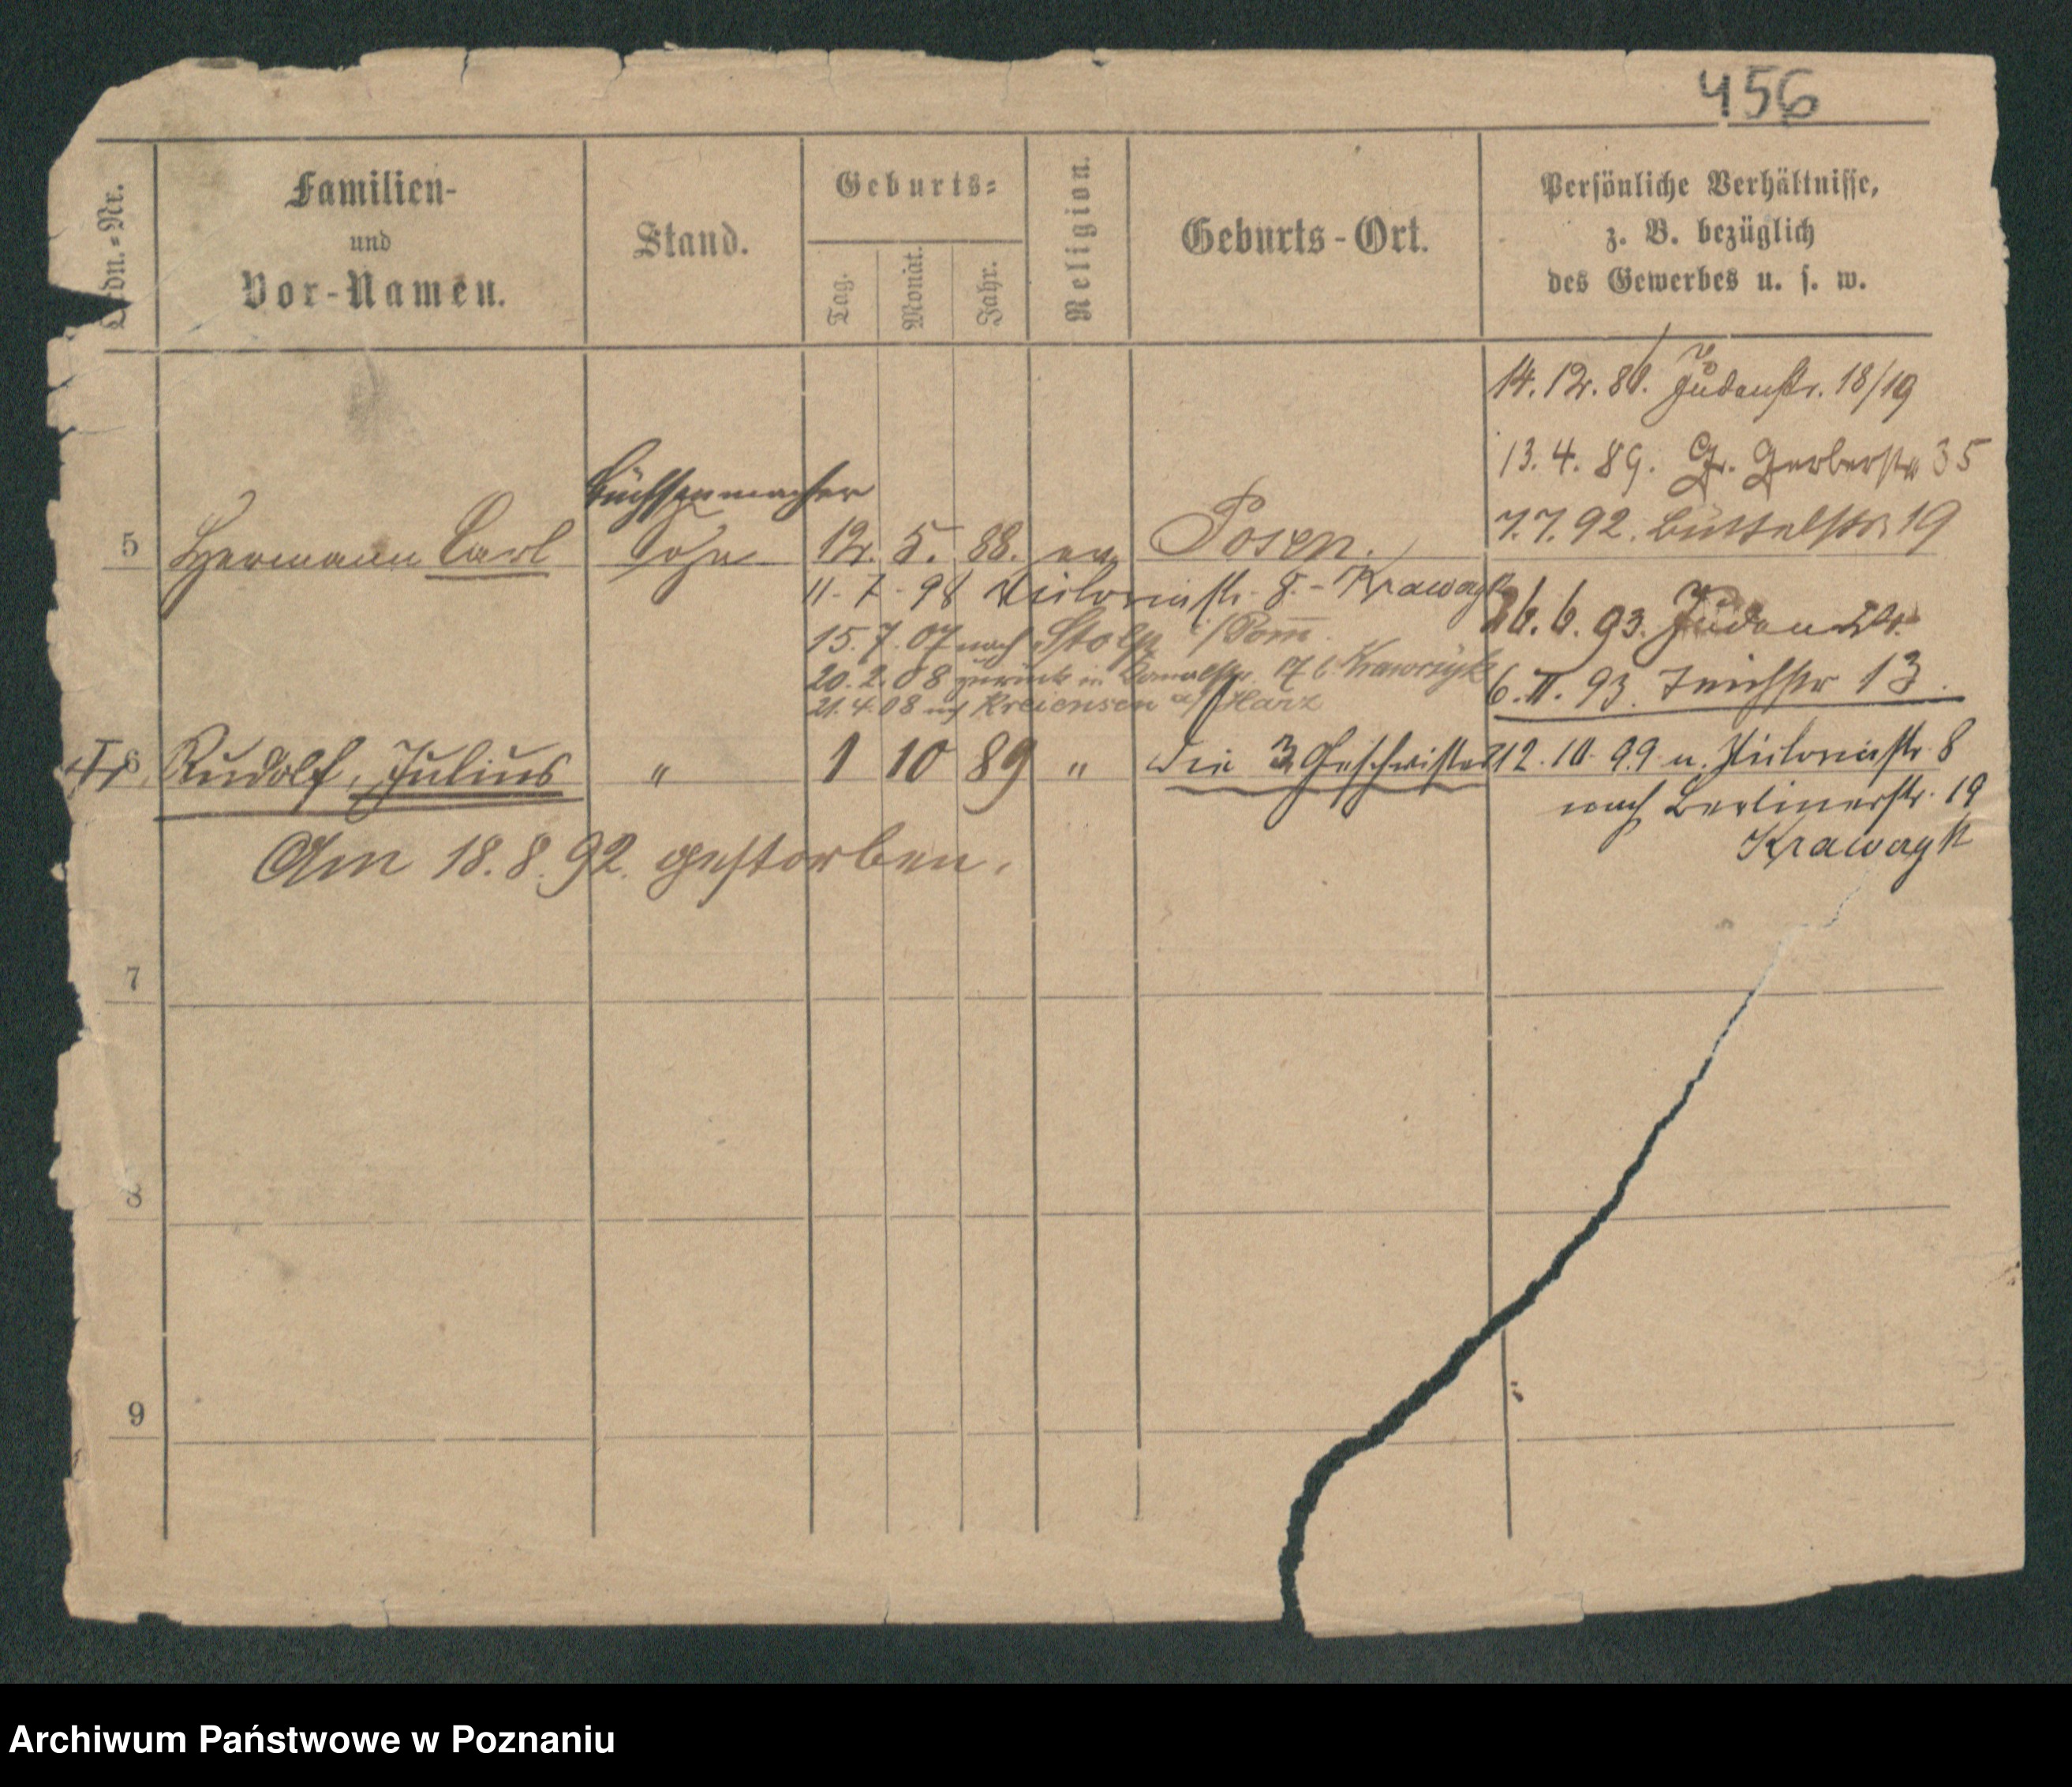 456
Ordn.-Nr.
Familien-
und
Vor-Namen.
Stand.
Geburts-
Tag.
Monat.
Jahr.
Religion.
Geburts-Ort.
Persönliche Verhältnisse,
z. B. bezüglich
des Gewerbes u. s. w.
14. 12. 88. Judenstr. 18/19
13. 4. 89. Gr. Gerberstr 35
Büchsenmacher
5 Hermann Carl Sohn 12. 5. 88. ev Posen.
7. 7. 92. Büttelstr. 19
11. 7. 98 Victoriastr. 8. - Krawczyk
26. 6. 93. Juden Str.
15. 7. 07 nach Stolp i/Pom.
20. 2. 08 zurück in Kanalstr. 17 b. Krawczyk
6. 11. 93. Teichstr 13.
21. 4. 08 nach Kreiensen a/Harz
6 Rudolf, Julius " 1 10 89 " Die 3 Geschwister
12. 10. 99 v. Victoriastr. 8
nach Berlinerstr. 19
Krawczyk
Am 18. 8. 92. gestorben.
7
8
9
Archiwum Państwowe w Poznaniu